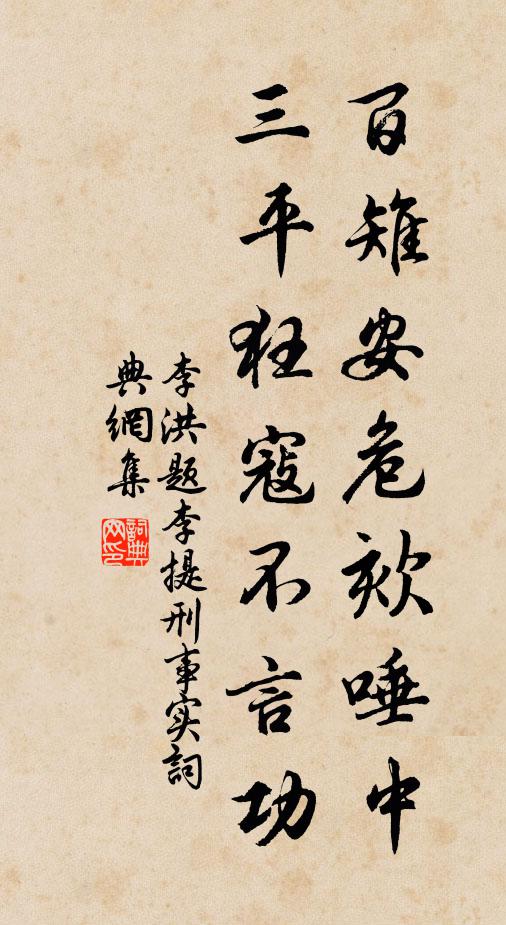 百雉安危欬唾中
三平狂寇不言功
李洪题李提刑事实詞
典網集
詞典网印